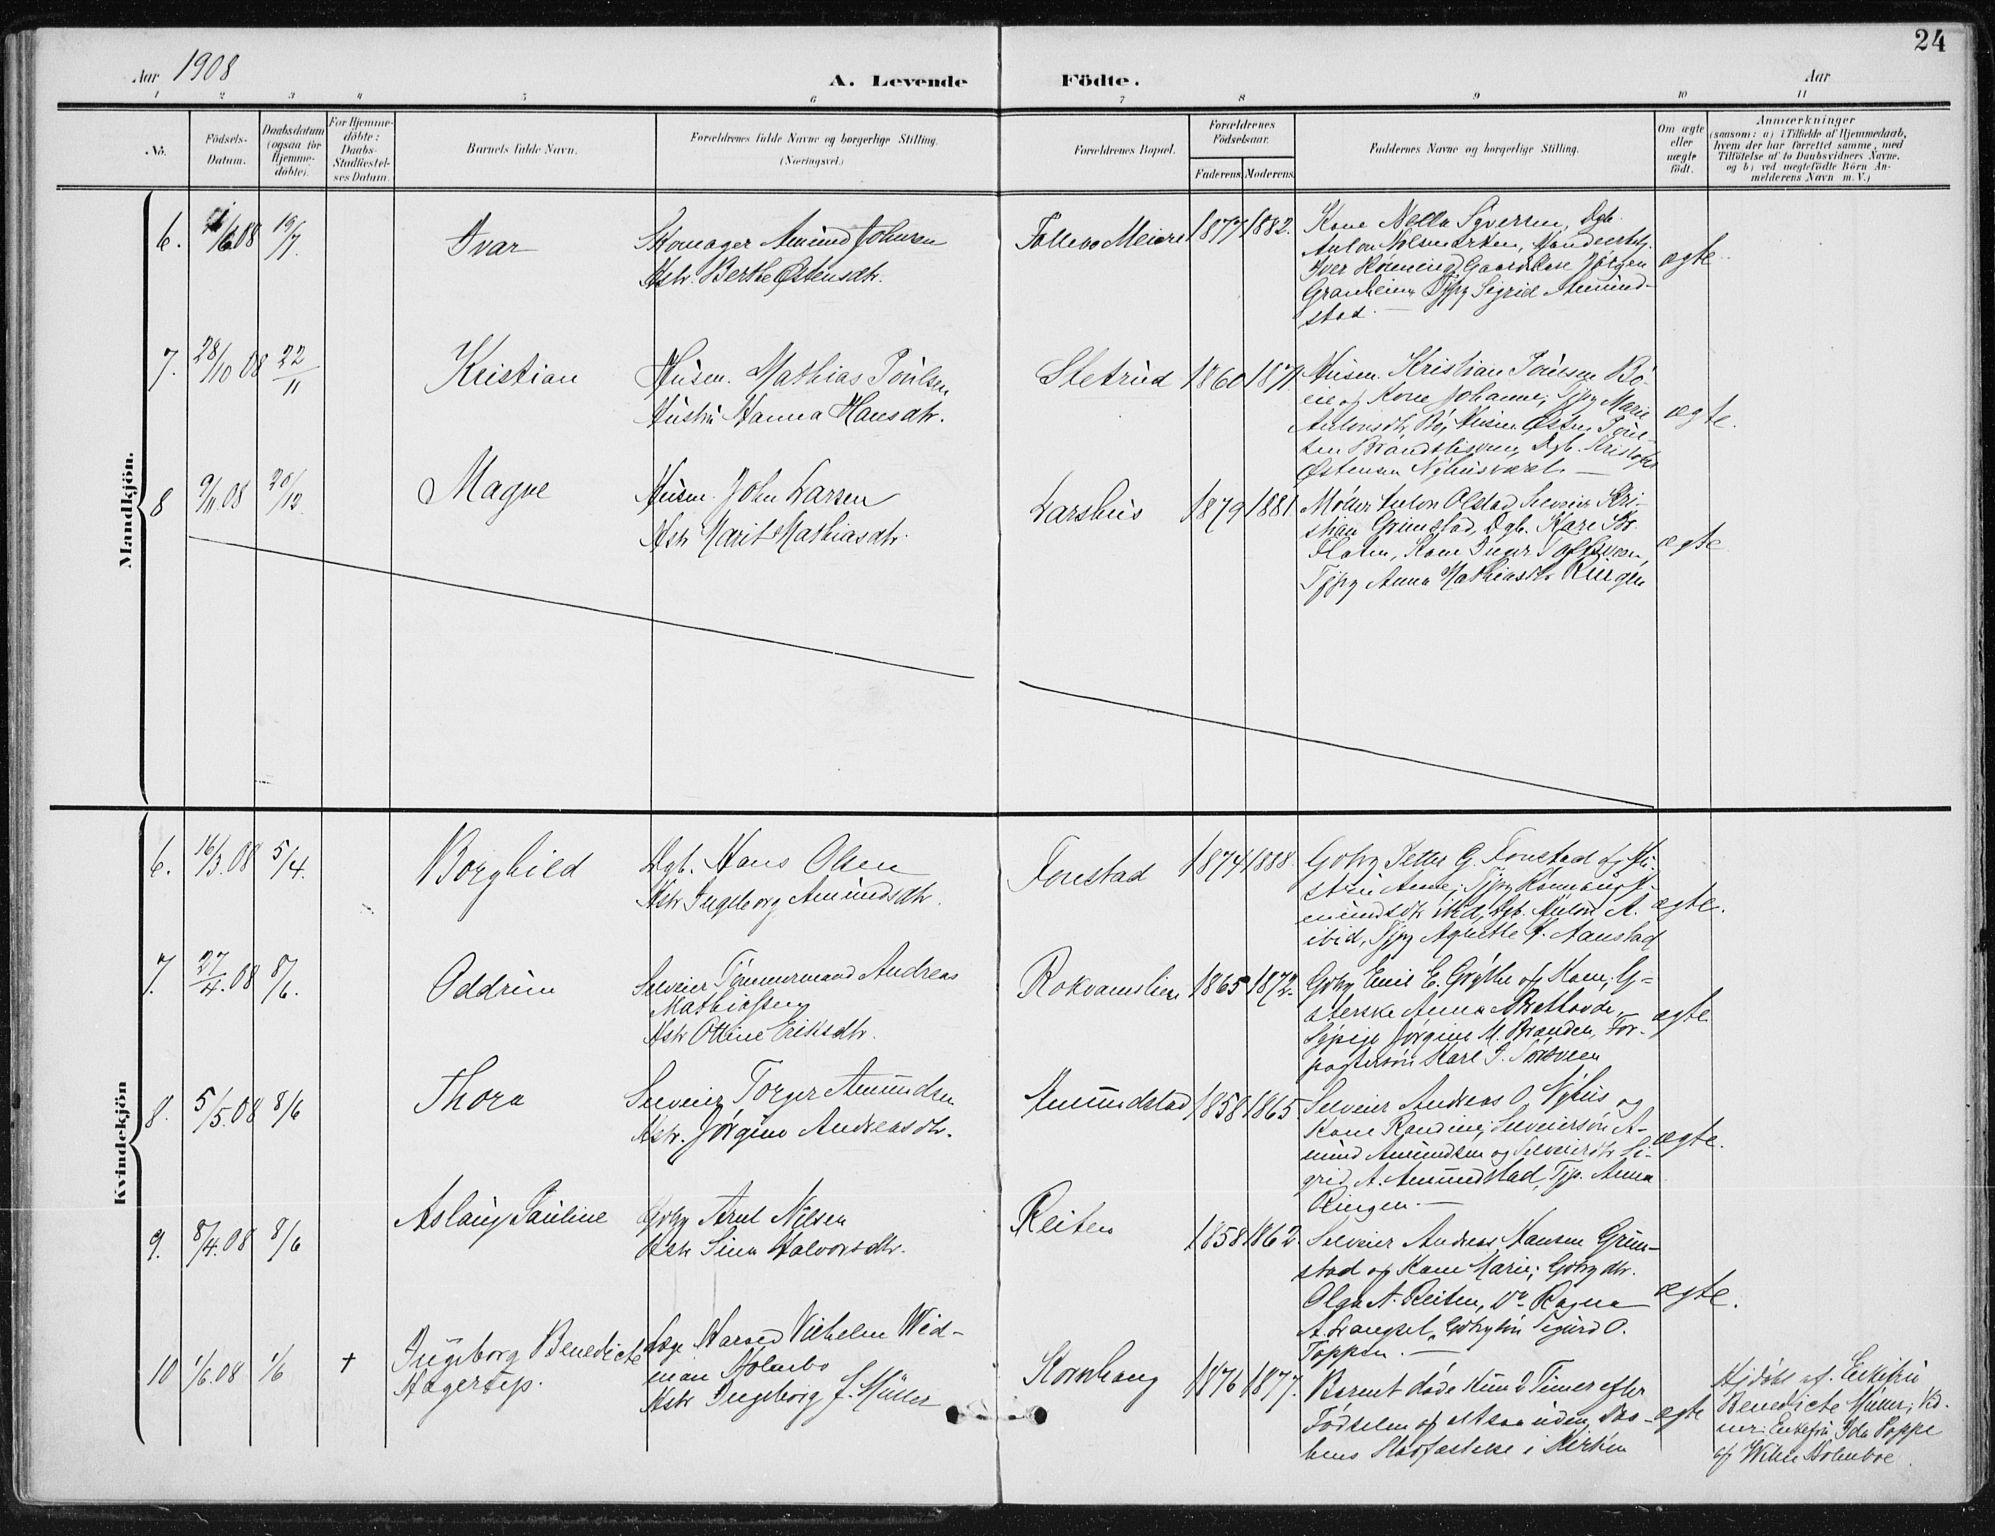 24
Aar 1908
A. Levende Födte.
Aar
1 2 3 4 5 6 7 8 9 10 11
No.
Födsels-
Datum.
Daabsdatum
(ogsaa for
Hjemme-
döbte).
For Hjemme-
döbte:
Daabs-
Stadfæstel-
ses Datum.
Barnets fulde Navn.
Forældrenes fulde Navne og borgerlige Stilling.
(Næringsvei.)
Forældrenes Bopæl.
Forældrenes
Födselsaar.
Faderens
Moderens
Faddernes Navne og borgerlige Stilling.
Om ægte
eller
uægte
födt.
Anmærkninger
(saasom: a) i Tilfælde af Hjemmedaab,
hvem der har forrettet samme, med
Tilföielse af to Daabsvidners Navne,
og b) ved uægtefödte Börn An-
melderens Navn m. V.)
Mandkjön.
6.
/6 08
19/7.
Ivar
Skomager Amund Johnsen
Hstr. Berthe Østensdtr.
Follebo Meieri
1877
1882.
Kone Nella Syversen, Dgb.
Anton
Iver
Granheim Tjpg Sigrid Amund-
stad. —
ægte.
7.
28/10 08
22/11
Kristian
Husm. Mathias Poulsen
Hustru Hanna Hansdtr.
Sletrud
1860
1871
Husm. Kristian Poulsen Bö-
og Kone Johanne; Tjpg Marie
Antonsdtr. Bö, Husm. Østen Poul-
sen Dgb. Kristofer
Østensen —
ægte.
8
9/11.08
20/12.
Magne
Husm. John Larsen
Hstr Marit Mathiasdtr.
Larshus
1879
1881
Møller Anton Olstad, Selveier Kri-
stian Grimstad, Dgb. Kare
Kone Inger
Tjpg Anna Mathiasdtr Ringen
ægte
Kvindekjön
6.
16/3.08
5/4.
Borghild
Dgb. Hans Olsen
Hstr Ingeborg Amundsdtr.
Fonstad
1874
1888.
Gbrg Petter G. Fonstad og Hu-
stru Anne; Tjpg A-
mundsdtr ibid, Dgb. Anton A.
ibid, Tjpg Agnethe A. Aanstad
ægte.
7.
27/4.08
8/6.
Oddrun
Selveier Tømmermand Andreas
Mathiassen
Hstr Ottine Eriksdtr.
Rokvamslien
1865
1872.
Gbrg Emil E. Grythe og Kone; Sy-
sterske Anna Bratthovde,
Sypige Jørgine M. Brænden, For-
pagtersøn Karl
ægte
8.
5/5.08
8/6
Thora
Selveier Torger Amundsen
Hstr. Jørgine Andreasdtr.
Amundstad
1858
1865.
Selveier Andreas O. Nyhus og
Kone Randine; Selveiersøn A-
mund Amundsen og Selveierdtr. Si-
grid A. Amundstad, Tjp. Anna
Ringen. —
ægte.
9.
8/4.08
8/6
Aslaug Pauline
Gbrg Arnt Nilsen
Hstr Sina Halvorsdtr.
Reiten
1858
1862.
Selveier Andreas Hansen Grim-
stad og Kone Marie; Gbrgdtr.
Olga A. Reiten, Do Ragna
A. Gbrgsøn Sigurd O.
Toppen. —
ægte.
10
1/6.08
1/6
+
Ingeborg Benedicte
Hagerup.
Læge Harald Vilhelm Wid-
Holmbo
Hstr Ingeborg f. Müller
Kornhaug
1876
1877.
Barnet døde kun 2 Timer efter
Fødselen og altsaa uden Daa-
bens Stadfæstelse i Kirken
ægte
Hjdøbt af Enkefru
Benedicte Müller; Vid-
ner: Enkefru Ida Poppe
og Holmboe.